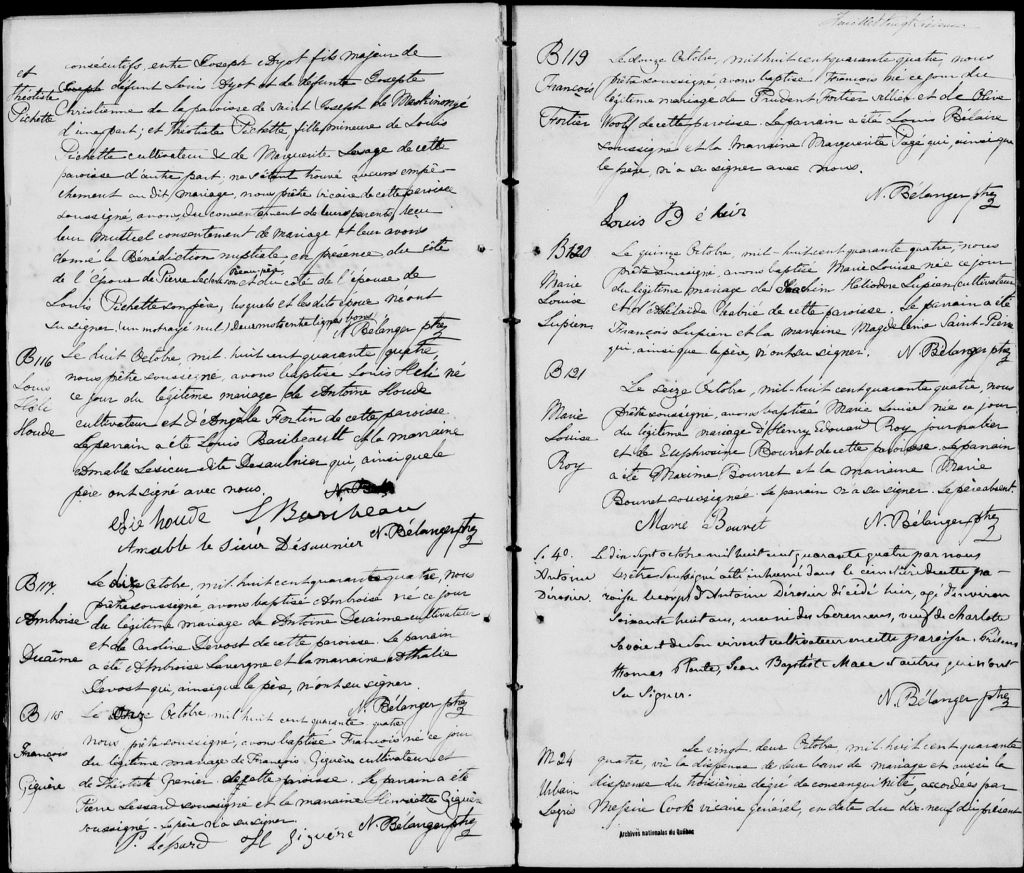 et
Théotiste
Pichette
consécutifs, entre Joseph Dyot fils majeur de
Joseph défunt Louis Dyot et de défunte Josephte
Christienne de la paroisse de Saint Joseph de Maskinongé
d'une part; et Théotiste Pichette, fille mineure de Louis
Pichette cultivateur & de Marguerite Lesage de cette
paroisse d'autre part; ne s'étant trouvé aucun empê-
chement au dit mariage, nous prêtre vicaire de cette paroisse
soussigné, avons, du consentement de leurs parents, reçu
leur mutuel consentement de mariage et leur avons
donné la Bénédiction nuptiale en présence, du côté
de l'époux de Pierre beau-père et du côté de l'épouse de
Louis Pichette son père, lesquels et les dits époux n'ont
su signer. (un mot rayé nul) deux mots entre lignes bons
N. Bélanger ptre
B 116
Louis
Héli
Houde
Le huit Octobre, mil-huit cent quarante quatre
nous prêtre soussigné, avons baptisé Louis Héli né
ce jour du légitime mariage de Antoine Houde
cultivateur et d'Angèle Fortin de cette paroisse
Le parrain a été Louis Baribeault et la marraine
Amable Lesieur dite Desaulnier qui, ainsi que le
père ont signé avec nous.
houde L Baribeau
Amable le Sieur Désaunier N. Bélanger ptre
B 117
Ambroise
Duaime
Le dix Octobre, mil-huit cent quarante quatre, nous
prêtre soussigné, avons baptisé Ambroise né ce jour
du légitime mariage de Antoine Duaime cultivateur
et de Caroline Devost de cette paroisse. Le parrain
a été Ambroise Lavergne et la marraine Athalie
Devost qui, ainsi que le père, n'ont su signer.
N. Bélanger ptre
B 118
François
Giguère
Le Onze Octobre, mil-huit cent quarante quatre
nous prêtre soussigné, avons baptisé François né ce jour
du légitime mariage de François Giguère cultivateur et
de Théotiste Grenier de cette paroisse. Le parrain a été
Pierre Lessard soussigné et la marraine Henriette Giguère
soussigné. Le père n'a su signer.
P. Lepard H Giguère N. Bélanger ptre
B 119
François
Fortier
Le douze Octobre, mil-huit cent quarante quatre, nous
prêtre soussigné avons baptisé François né ce jour du
légitime mariage de Prudent Fortier et de Olive
Woolf de cette paroisse. Le parrain a été Louis Bélaire
soussigné et la marraine Marguerite Pagé qui, ainsi que
le père, n'a su signer avec nous.
N. Bélanger ptre
Louis
B 120
Marie
Louise
Lupien
Le quinze Octobre, mil-huit cent quarante quatre, nous
prêtre soussigné, avons baptisé Marie Louise née ce jour
du légitime mariage de Joachim Héliodore Lupien cultivateur
et d'Adélaïde de cette paroisse. Le parrain a été
François Lupien et la marraine Magdeleine Saint-Pierre
qui, ainsi que le père, n'ont su signer. N. Bélanger ptre
B 121
Marie
Louise
Roy
Le seize Octobre, mil-huit cent quarante quatre, nous
prêtre soussigné, avons baptisé Marie Louise née ce jour
du légitime mariage d'Henry Edouard Roy journalier
et de Euphrosine Bourret de cette paroisse. Le parrain
a été Maxime Bourret et la marraine Marie
Bourret soussignée. Le parrain n'a su signer. Le père absent.
Marie Bourret N. Bélanger ptre
S. 40.
Antoine
Dérosier.
Le dix Sept octobre mil huit cent quarante quatre par nous
Prêtre Soussigné a été inhumé dans le cimetière de cette pa-
roisse le corps d'Antoine Dérosier décédé hier, agé d'environ
soixante huit ans, muni des Sacremens, veuf de charlotte
Savoie et de son vivant cultivateur en cette paroisse. Présens
thomas Plante, Jean Baptiste Mace & autres qui n'ont
su Signer.
N. Bélanger ptre
M 24
Urbain
Le vingt deux Octobre, mil-huit cent quarante
quatre, vu la dispense de deux bans de mariage et aussi la
dispense du troisième degré de consanguinité, accordées par
Messire Cook vicaire général, en date du dix-neuf du présent
Archives nationales du Québec